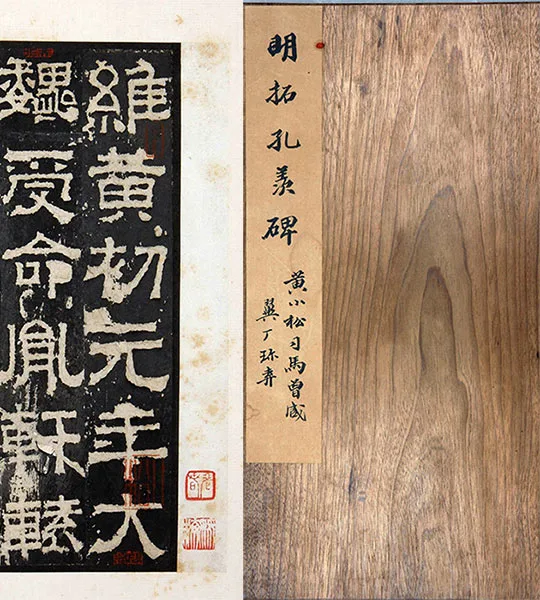 明拓孔羨碑
黃小松司馬曾
巽丁珍弆
維黃初元年大
魏受命胤軒轅